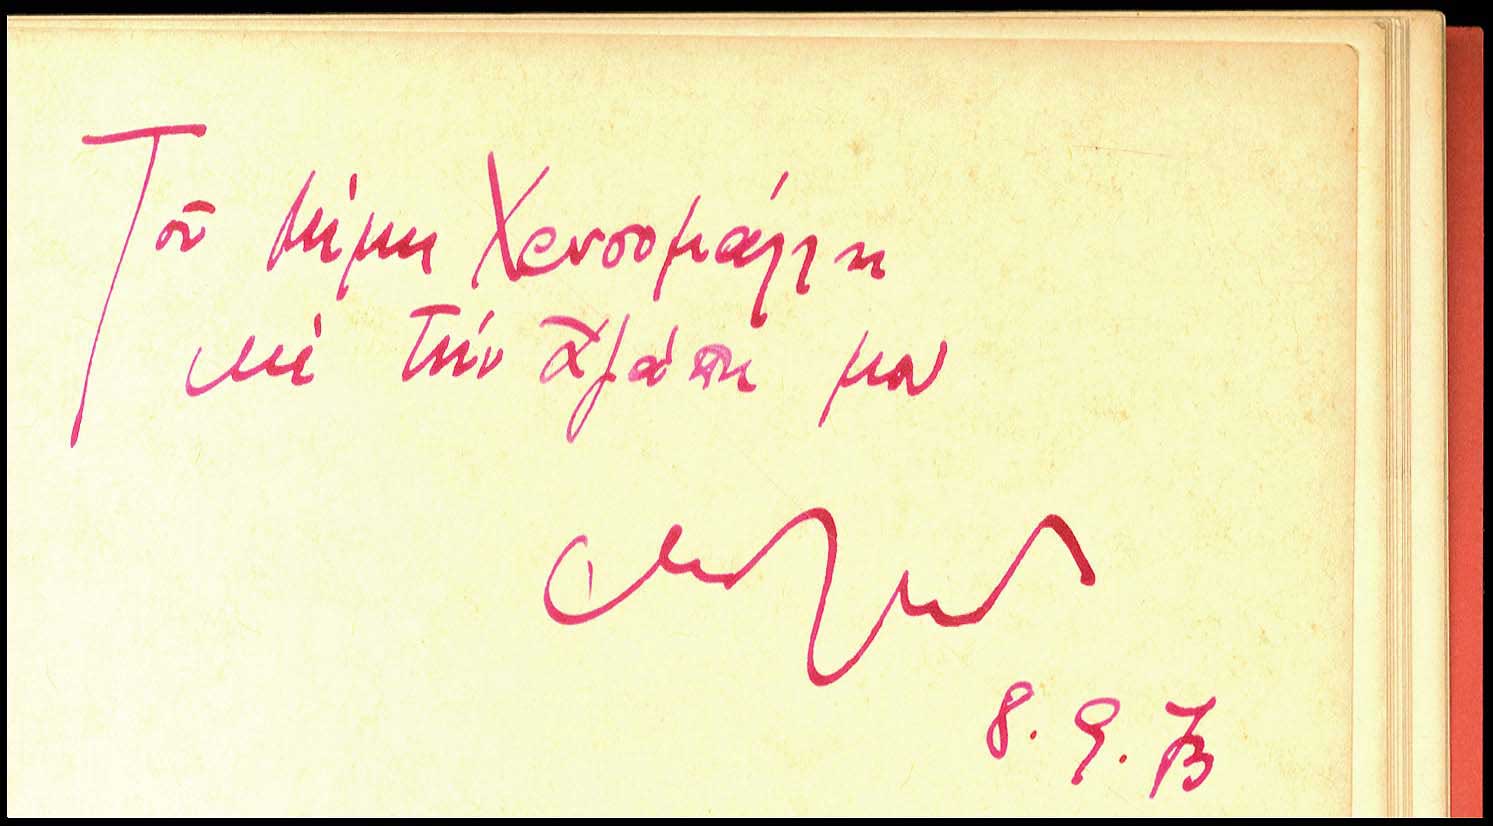 Τοῦ Μίμη Χρυσομάλλη
μὲ τὴν ἀγάπη μου
8.9.73